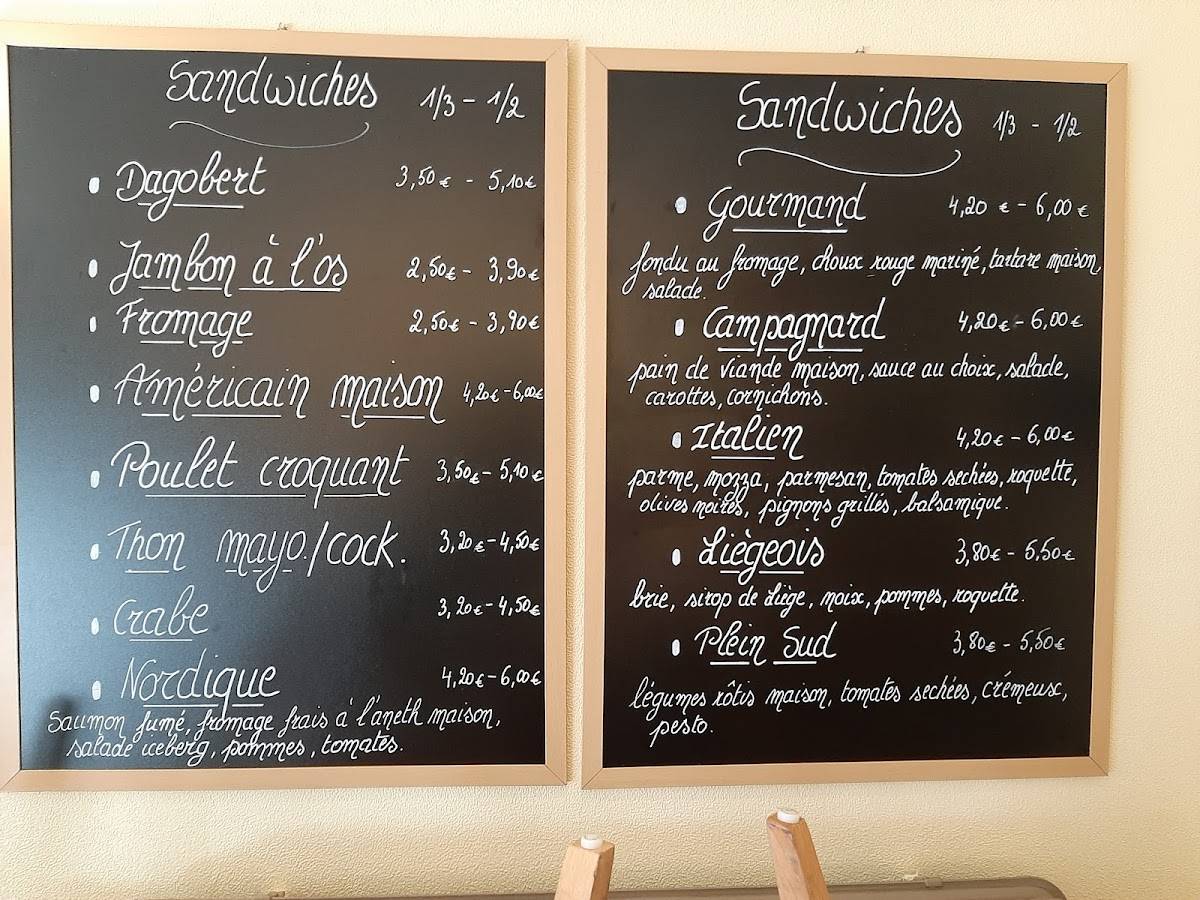 Sandwiches 1/3 - 1/2
Dagobert 3,50€ - 5,10€
Jambon à l'os 2,50€ - 3,90€
Fromage 2,50€ - 3,90€
Américain maison 4,20€ - 6,00€
Poulet croquant 3,50€ - 5,10€
Thon mayo./cock. 3,20€ - 4,50€
Crabe 3,20€ - 4,50€
Nordique 4,20€ - 6,00€
Saumon fumé, fromage frais à l'aneth maison,
salade iceberg, pommes, tomates.
Sandwiches 1/3 - 1/2
Gourmand 4,20 € - 6,00 €
fondu au fromage, choux rouge mariné, tartare maison,
salade.
Campagnard 4,20€ - 6,00€
pain de viande maison, sauce au choix, salade,
carottes, cornichons.
Italien 4,20€ - 6,00€
parme, mozza, parmesan, tomates sechées, roquette,
olives noires, pignons grillés, balsamique.
Liègeois 3,80€ - 5,50€
brie, sirop de Liège, noix, pommes, roquette.
Plein Sud 3,80€ - 5,50€
légumes rôtis maison, tomates sechées, crémeux,
pesto.